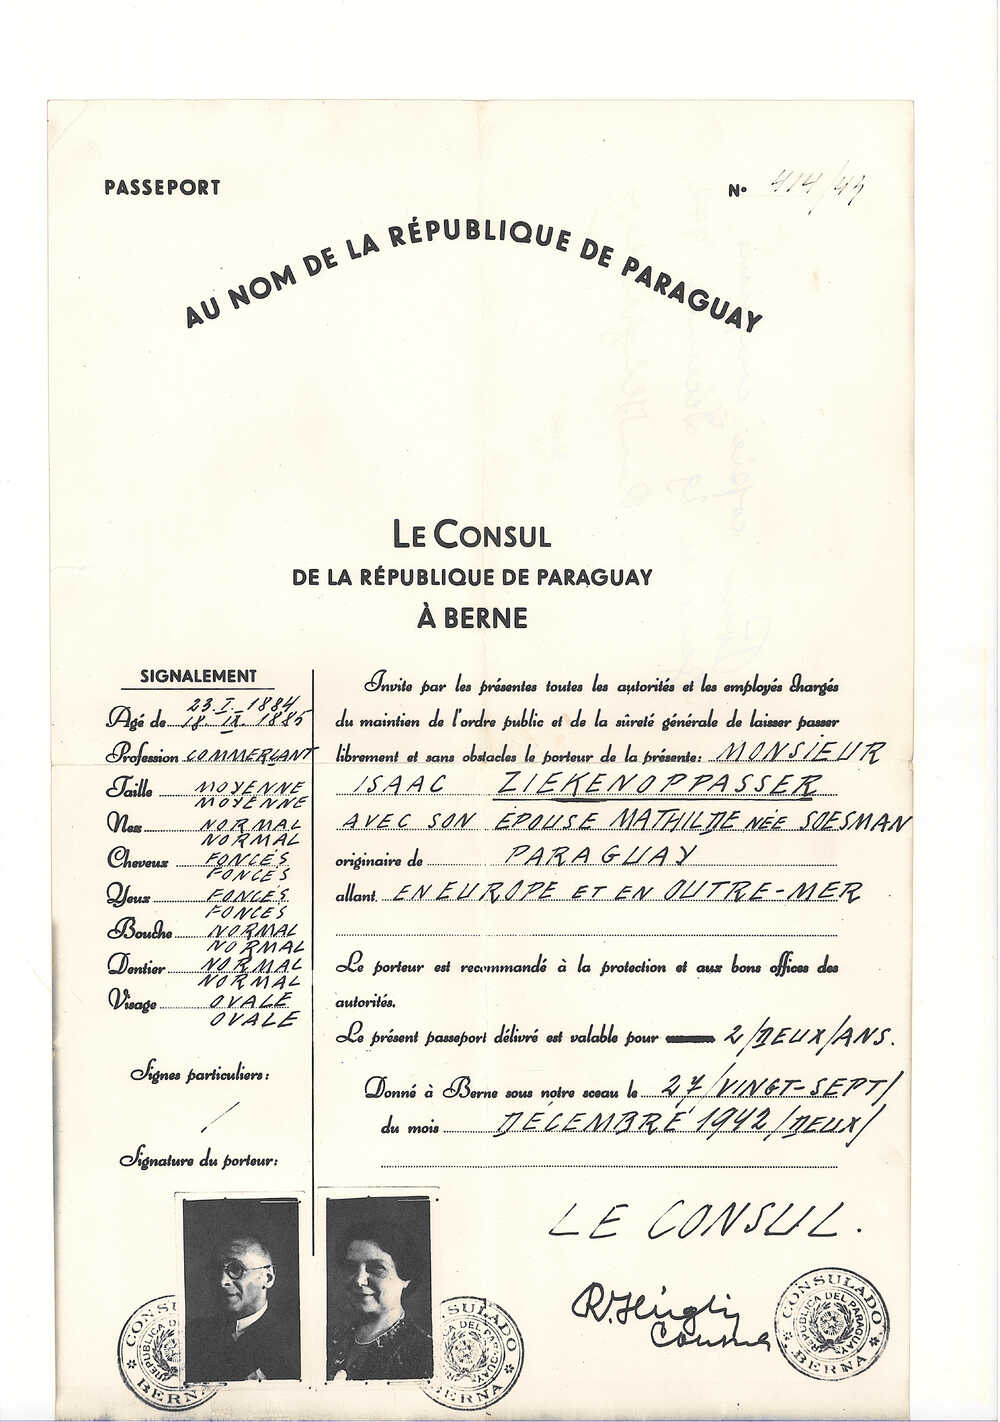 PASSEPORT
Nº 414/43
AU NOM DE LA RÉPUBLIQUE DE PARAGUAY
LE CONSUL
DE LA RÉPUBLIQUE DE PARAGUAY
À BERNE
SIGNALEMENT
23. I. 1884
Agé de 18. IX. 1885
Profession COMMERÇANT
Taille MOYENNE
MOYENNE
Nez NORMAL
NORMAL
Cheveux FONCÉS
FONCÉS
Yeux FONCÉS
FONCÉS
Bouche NORMAL
NORMAL
Dentier NORMAL
NORMAL
Visage OVALE
OVALE
Signes particuliers:
/
Signature du porteur:
Invite par les présentes toutes les autorités et les employés chargés
du maintien de l'ordre public et de la sûreté générale de laisser passer
librement et sans obstacles le porteur de la présente: MONSIEUR
ISAAC ZIEKENOPPASSER
AVEC SON ÉPOUSE MATHILDE NÉE SOESMAN
originaire de PARAGUAY
allant EN EUROPE ET EN OUTRE-MER
Le porteur est recommandé à la protection et aux bons offices des
autorités.
Le présent passeport délivré est valable pour 2/DEUX/ANS.
Donné à Berne sous notre sceau le 27/VINGT-SEPT/
du mois DÉCEMBRE 1942/DEUX/
LE CONSUL.
R. Hügli
Consul
CONSULADO
REPUBLICA DEL PARAGUAY
BERNA
CONSULADO
REPUBLICA DEL PARAGUAY
BERNA